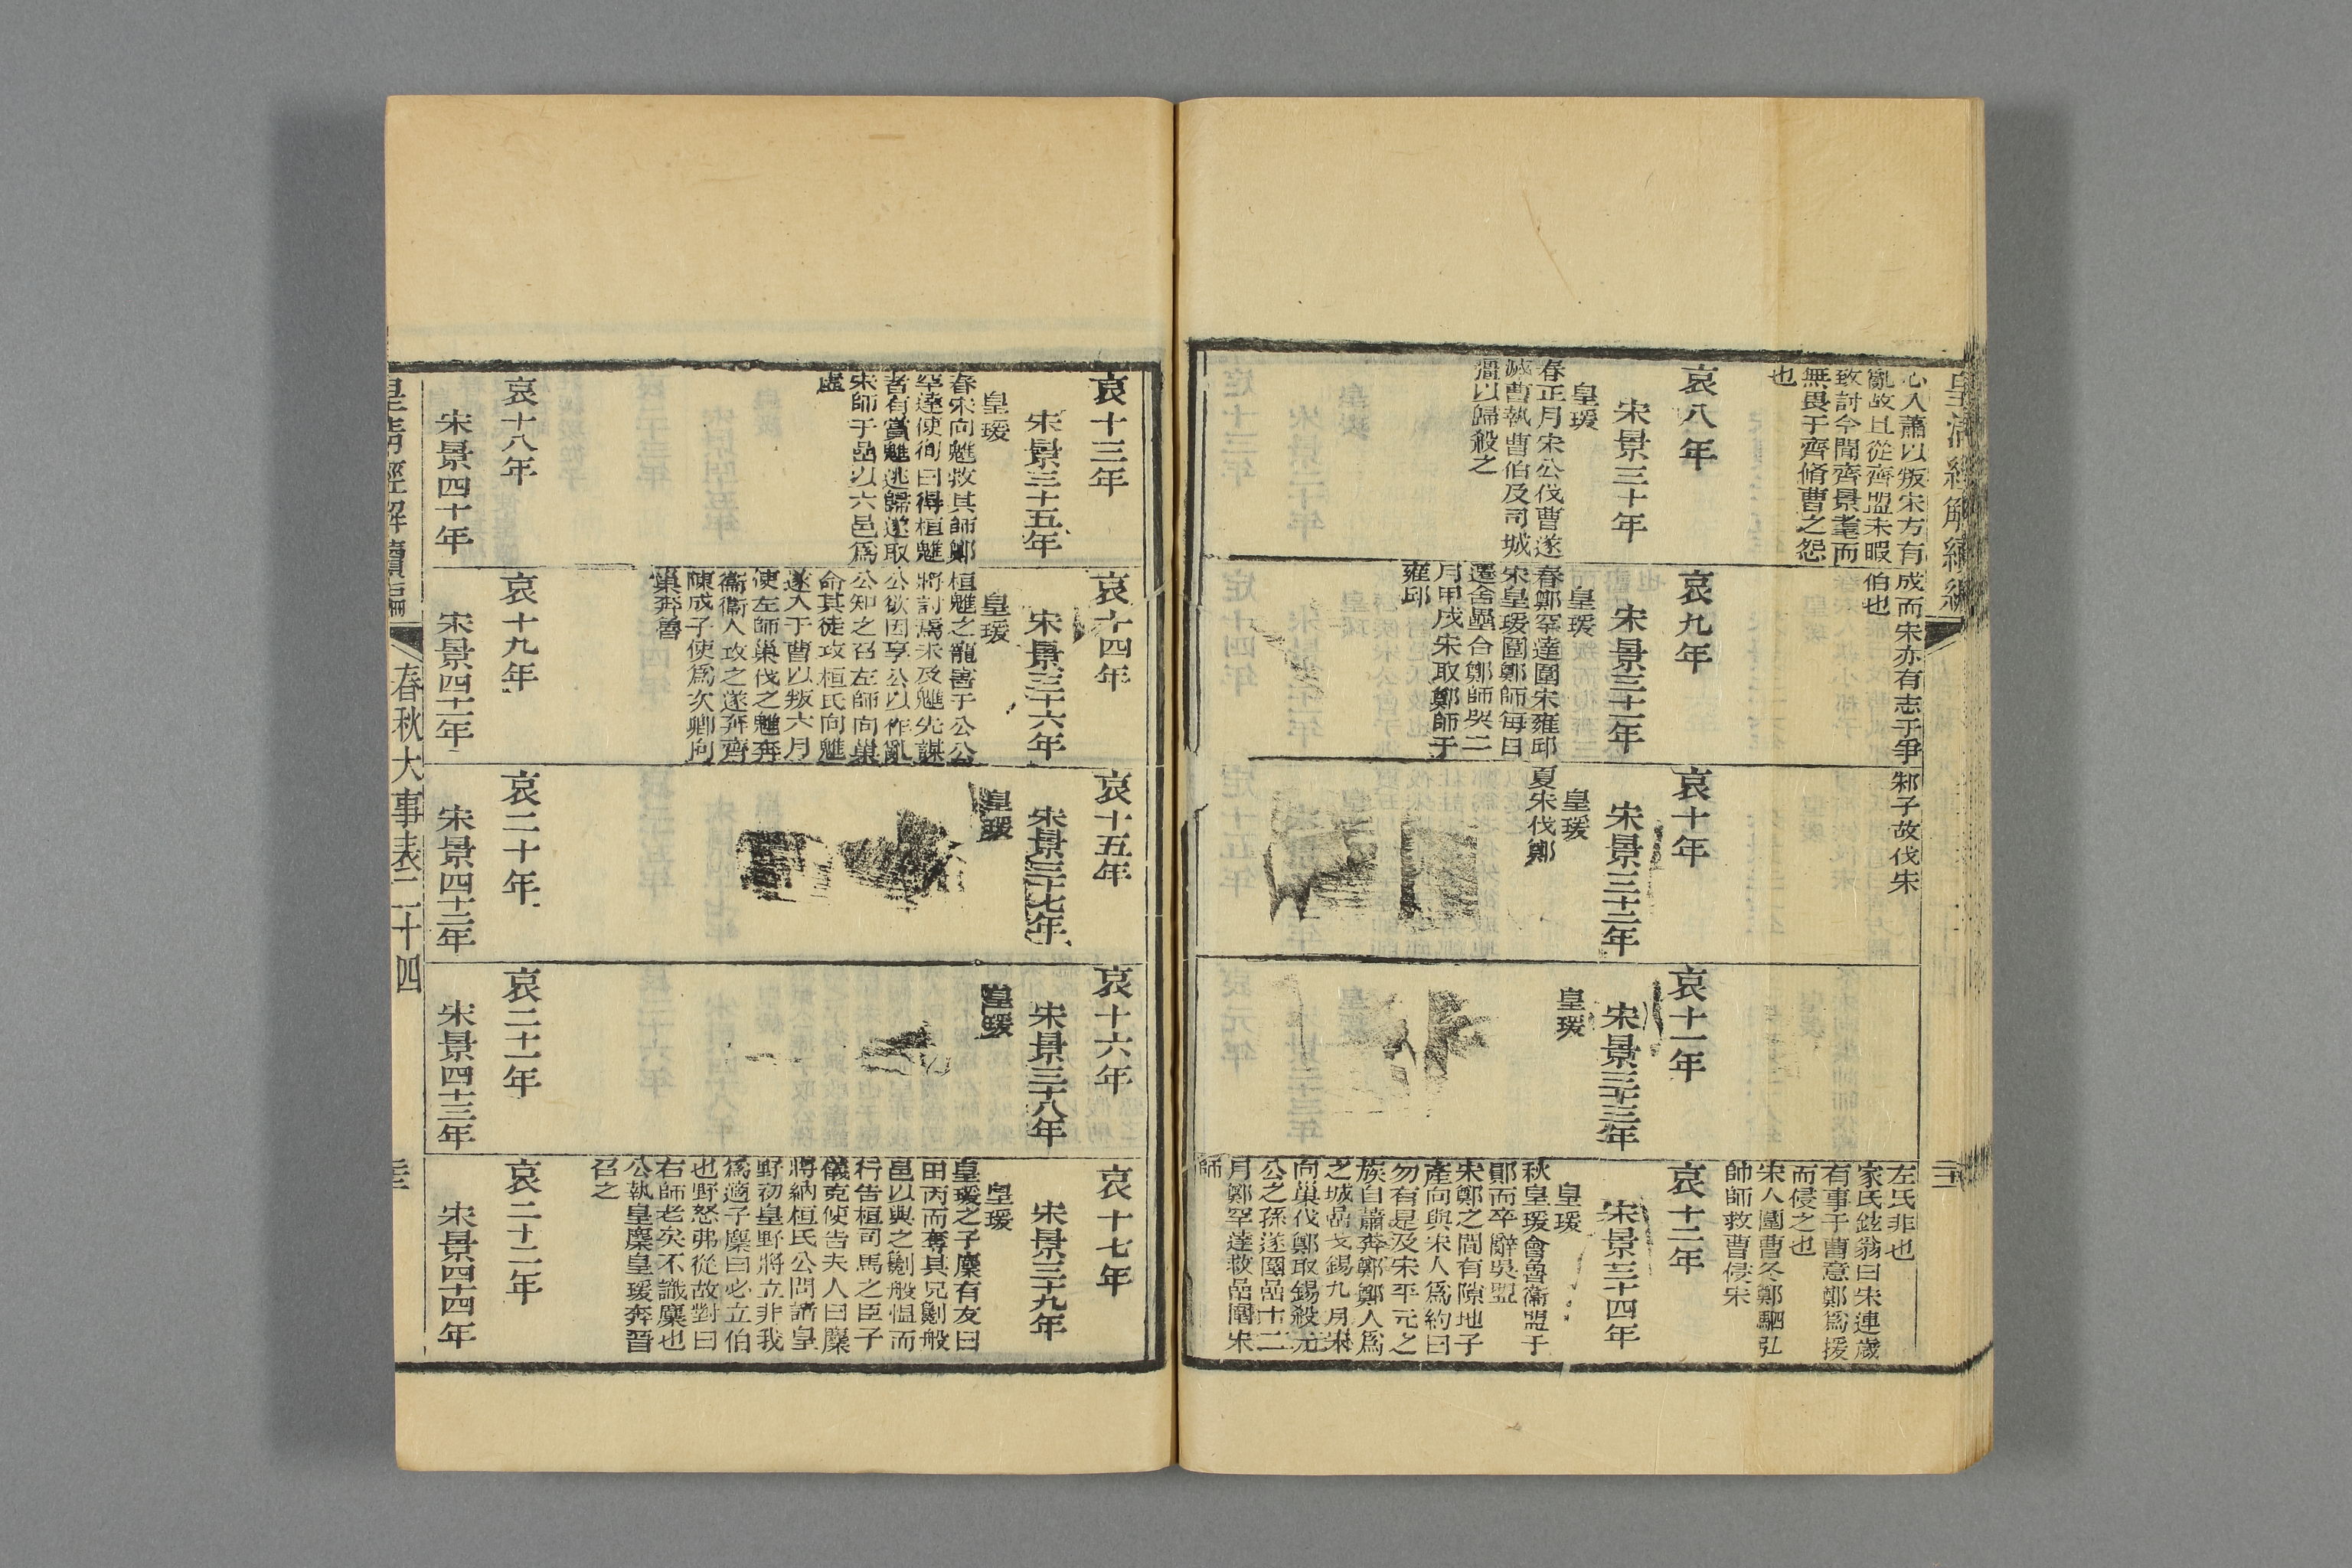 心入蕭以叛宋方有
亂故且從齊盟未暇
致討今聞齊景耄而
無畏于齊脩曹之怨
也
成而宋亦有志于爭
伯也
邾子故伐宋
左氏非也
家氏鉉翁曰宋連歲
有事于曹意鄭爲援
而侵之也
宋人圍曹冬鄭駟弘
帥師救曹侵宋
哀八年
宋景三十年
皇瑗
春正月宋公伐曹遂
滅曹執曹伯及司城
彊以歸殺之
哀九年
宋景三十一年
皇瑗
春鄭罕達圍宋雍邱
宋皇瑗圍鄭師每日
遷舍壘合鄭師哭二
月甲戌宋取鄭師于
雍邱
哀十年
宋景三十二年
皇瑗
夏宋伐鄭
哀十一年
宋景三十三年
皇瑗
哀十二年
宋景三十四年
皇瑗
秋皇瑗會魯衞盟于
鄖而卒辭吳盟
宋鄭之間有隙地子
產向與宋人爲約曰
勿有是及宋平元之
族自蕭奔鄭鄭人爲
之城嵒戈錫九月宋
向巢伐鄭取錫殺元
公之孫遂圍嵒十二
月鄭罕達救嵒圍宋
師
哀十三年
宋景三十五年
皇瑗
春宋向魋救其師鄭
罕達使徇曰得桓魋
者有賞魋逃歸遂取
宋師于嵒以六邑爲
虛
哀十四年
宋景三十六年
皇瑗
桓魋之寵害于公公
將討焉未及魋先謀
公欲因享公以作亂
公知之召左師向巢
命其徒攻桓氏向魋
遂入于曹以叛六月
使左師巢伐之魋奔
衞衞人攻之遂奔齊
陳成子使爲次卿向
巢奔魯
哀十五年
宋景三十七年
皇瑗
哀十六年
宋景三十八年
皇瑗
哀十七年
宋景三十九年
皇瑗
皇瑗之子麇有友曰
田丙而奪其兄劖般
邑以與之劖般慍而
行告桓司馬之臣子
儀克使告夫人曰麇
將納桓氏公問諸皇
野初皇野將立非我
爲適子麇曰必立伯
也野怒弗從故對曰
右師老矣不識麇也
公執皇麇皇瑗奔晉
召之
哀十八年
宋景四十年
哀十九年
宋景四十一年
哀二十年
宋景四十二年
哀二十一年
宋景四十三年
哀二十二年
宋景四十四年
皇淸經解續編
春秋大事表二十四